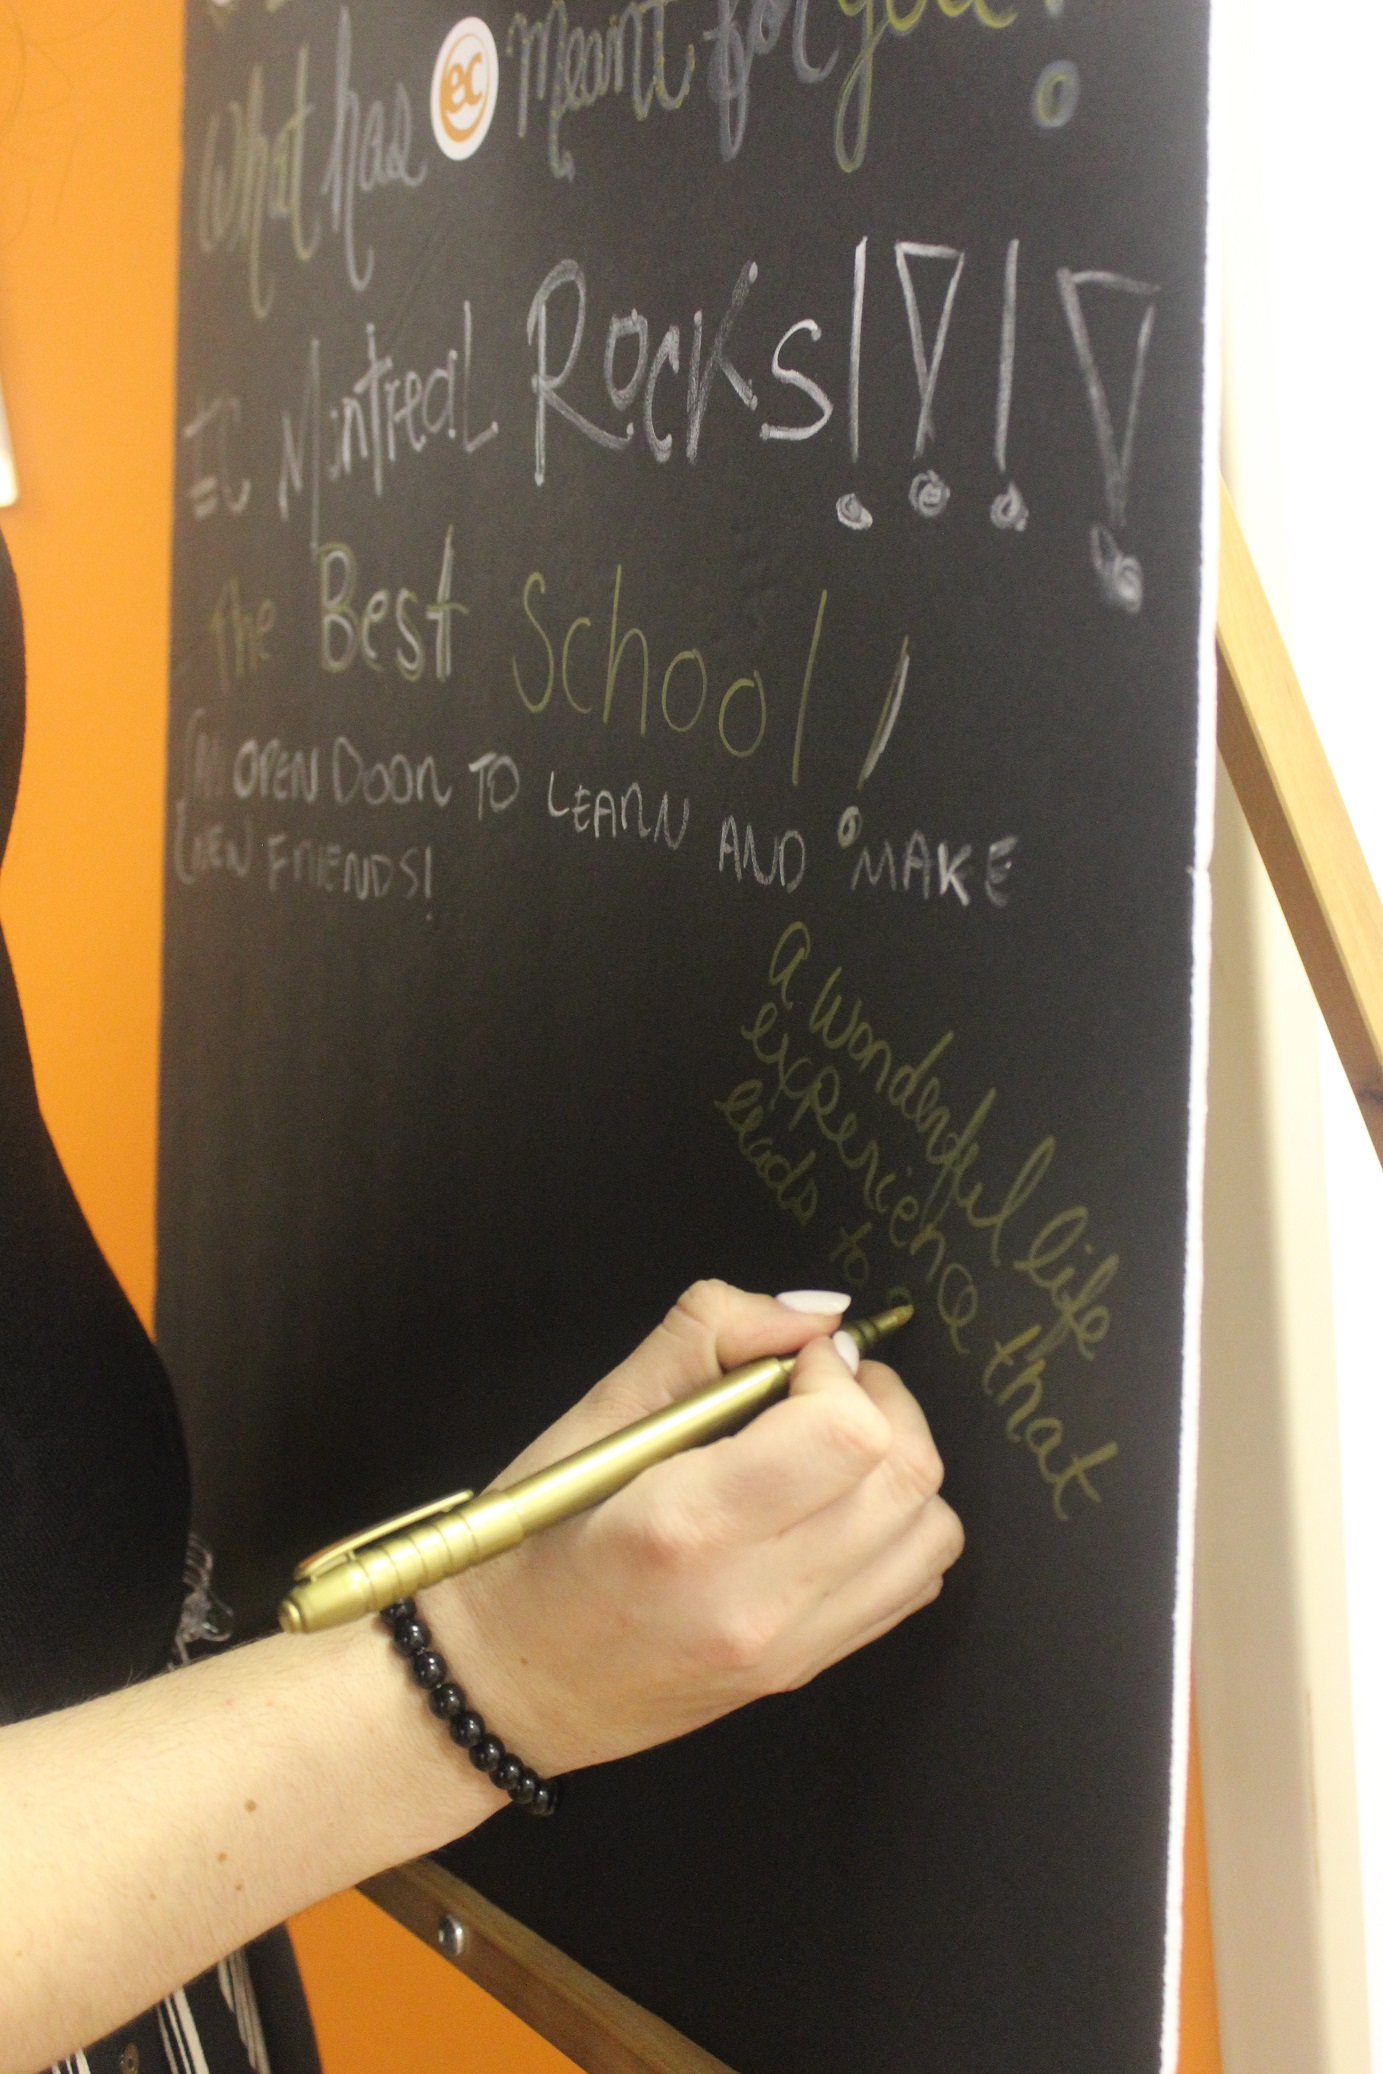 What has ec meant for you?
EC Montreal Rocks!!!!
- The Best School!
An OPEN DOOR TO LEARN AND MAKE
NEW FRIENDS!
A wonderful life
experience that
leads to a